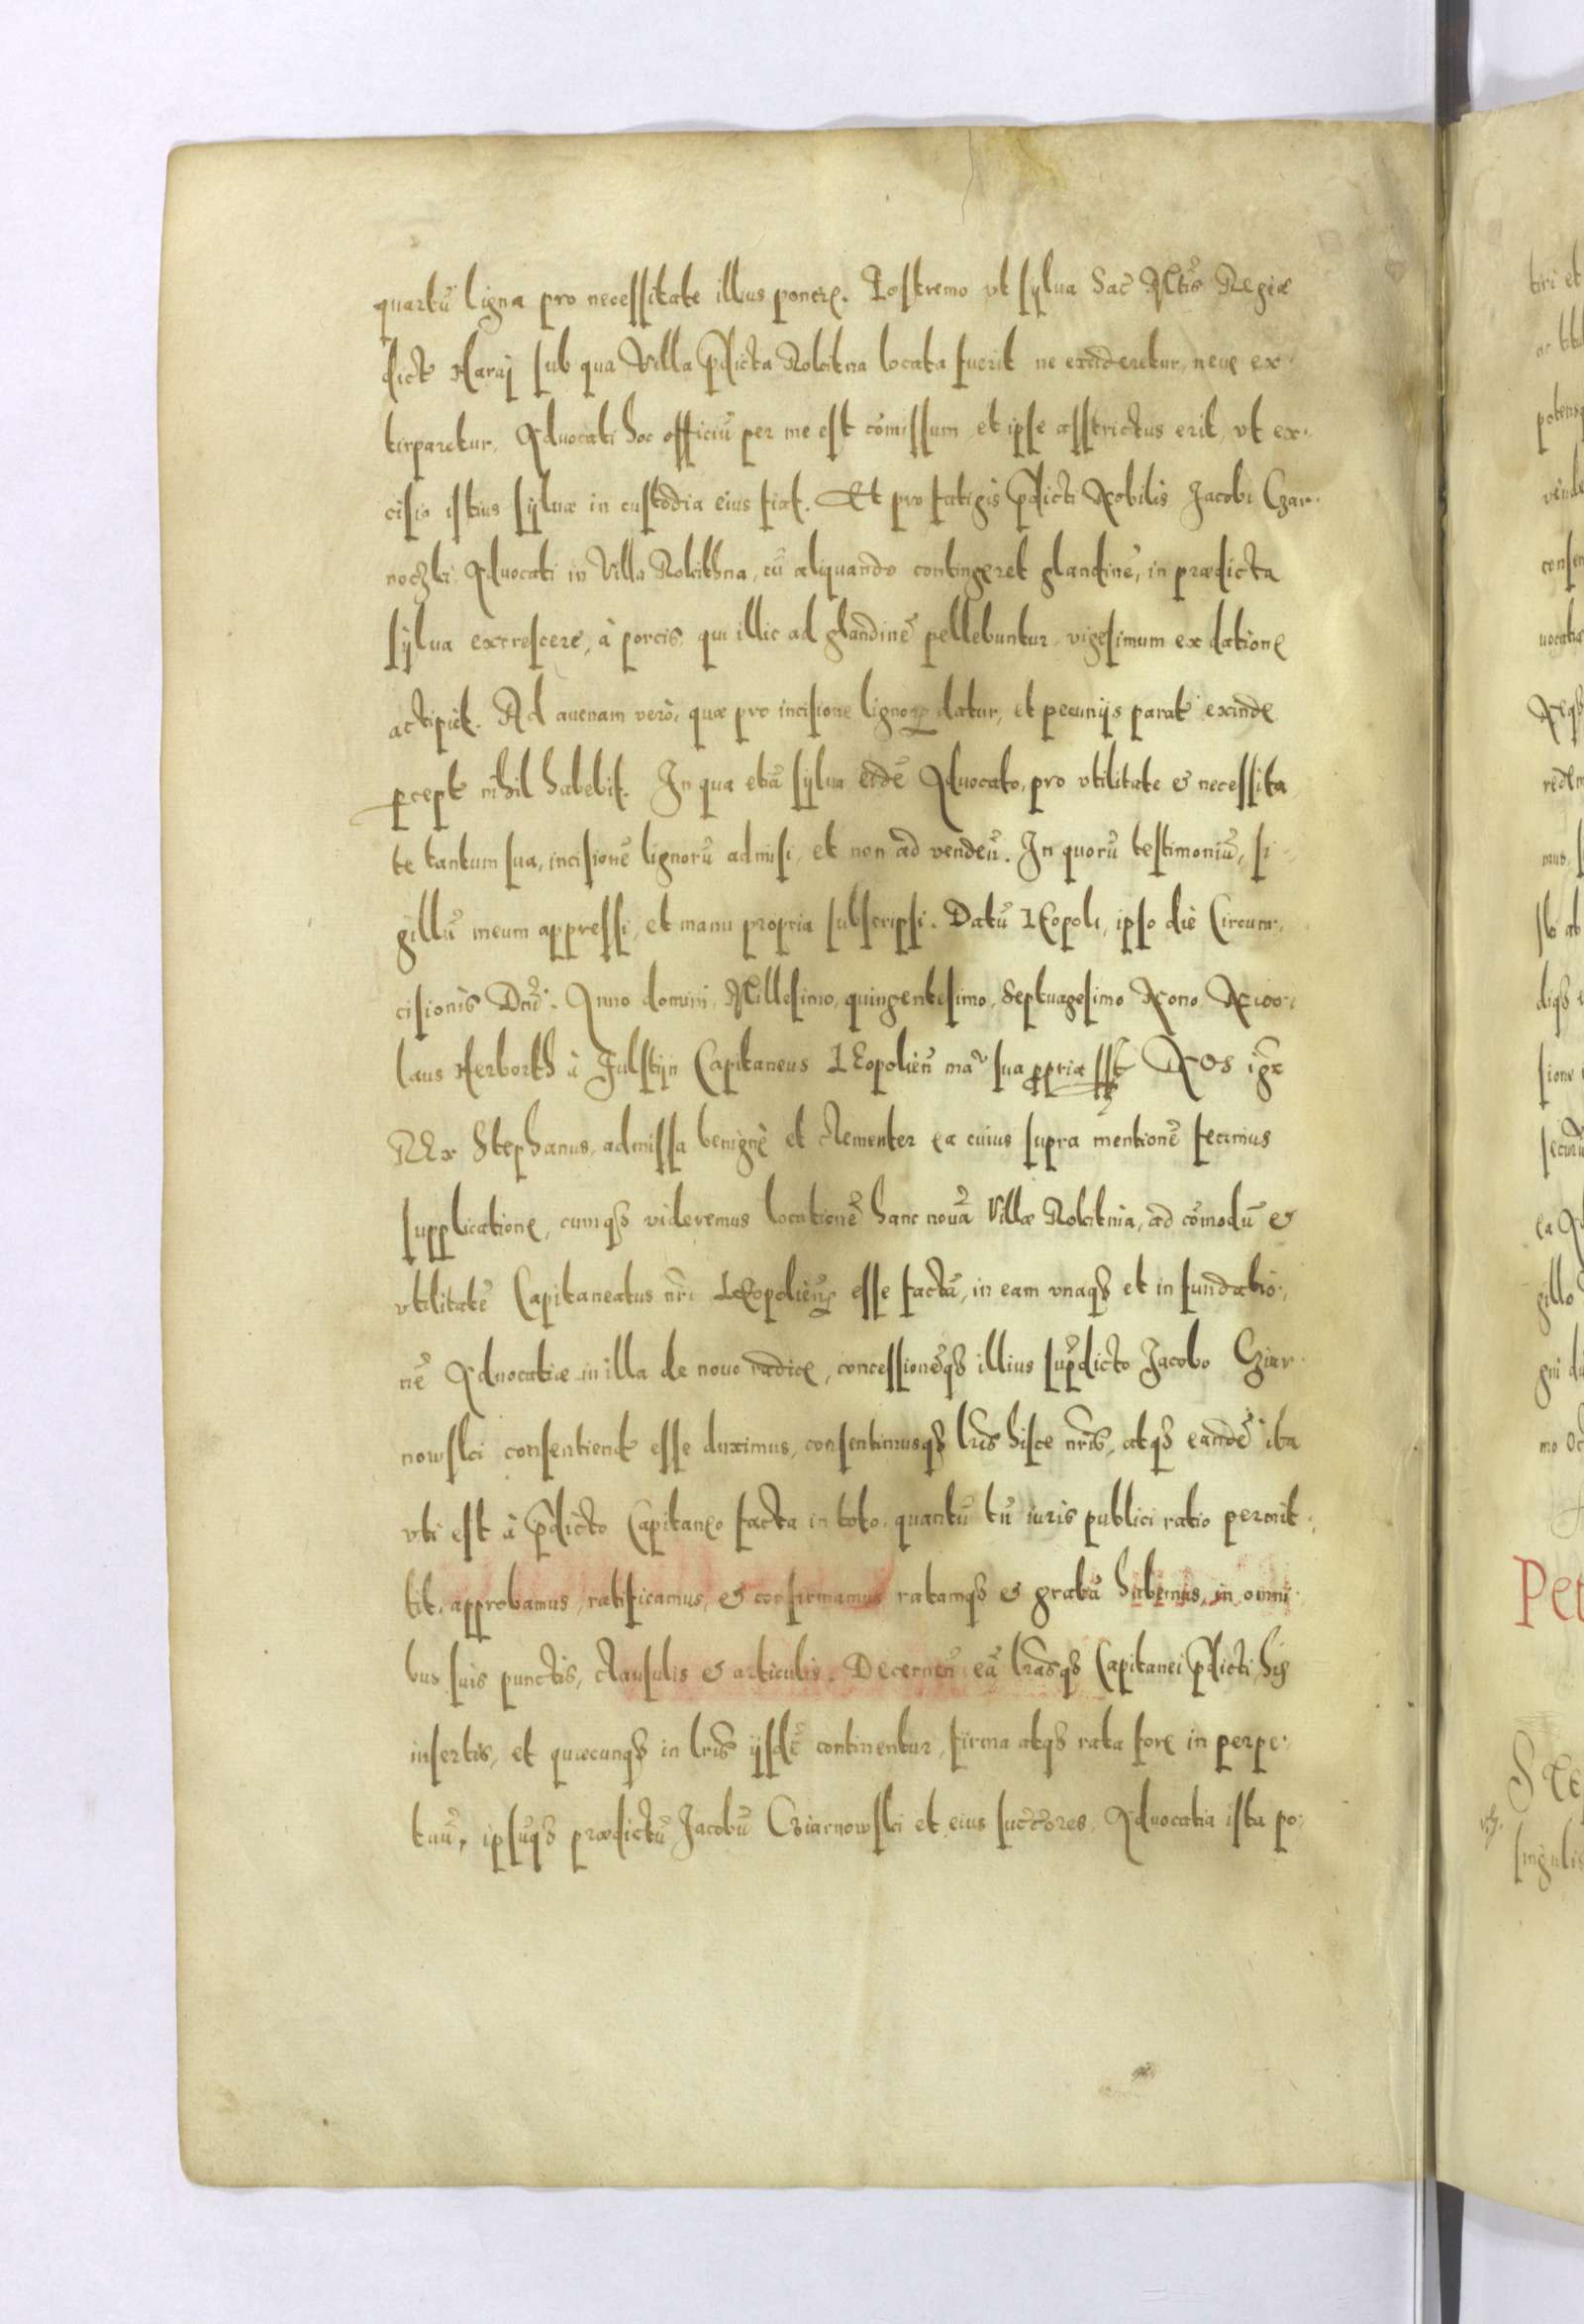 quartũ ligna pro necessitate illius ponere. Postremo vt sylua Sac̃ Mtis Regiæ
dict Haraj sub qua Villa p̃dicta Rokitna locata fuerit ne excideretur, neue ex-
tirparetur, Aduocati hoc officiũ per me est cõmissum, et ipse asstrictus erit, vt ex-
cisio istius syluæ in custodia eius fiat. Et pro fatigis p̃dicti Nobilis Jacobi Czar-
noczki Aduocati in Villa Rokithna, cũ aliquando contingeret glandinẽ, in prædicta
sylua excrescere, à porcis, qui illic ad glandinẽ pellebuntur, vigesimum ex datione
accipiet. Ad auenam verò, quæ pro incisione lignoꝝ datur, et pecunijs parat exinde
ꝑcept nihil habebit. In qua etiã sylua eidẽ Aduocato, pro vtilitate & necessita
te tantum sua, incisionẽ lignorũ admisi, et non ad vendeñ. In quorũ testimoniũ, si-
gillũ meum appressi, et manu propria subscripsi. Datũ LEopoli, ipso die Circum-
cisionis Dñi. Anno domini, Millesimo, quingentesimo, Septuagesimo Nono. Nico-
laus Herborth à Fulstijn Capitaneus LEopolieñ mãu sua ꝓpria sst NOs igr̃
REx Stephanus, admissa benignè et clementer ea cuius supra mentionẽ fecimus
supplicatione, cumqꝫ videremus locationẽ hanc nouã Villæ Rokitnia, ad cõmodũ &
vtilitatẽ Capitaneatus nr̃i LEopolieñs esse factã, in eam vnaqꝫ et in fundatio-
nẽ Aduocatiæ in illa de nouo radice, concessionẽqꝫ illius sup̃dicto Jacobo Cziar-
nowski consentiend esse duximus, consentimusqꝫ lr̃is hisce nr̃is, atqꝫ eandẽ ita
vti est à p̃dicto Capitaneo facta in toto, quantũ tũ iuris publici ratio permit-
tit, approbamus, ratificamus, & confirmamus ratamqꝫ & gratã habemus, in omni-
bus suis punctis, clausulis & articulis. Decerneñ eã lr̃asqꝫ Capitanei p̃dicti his
insertis, et quæcunqꝫ in lr̃is ijsdẽ continentur, firma atqꝫ rata fore in perpe-
tuũ, ipsũqꝫ prædictũ Jacobũ Cziarnowski et eius succẽores, Aduocatia ista po-